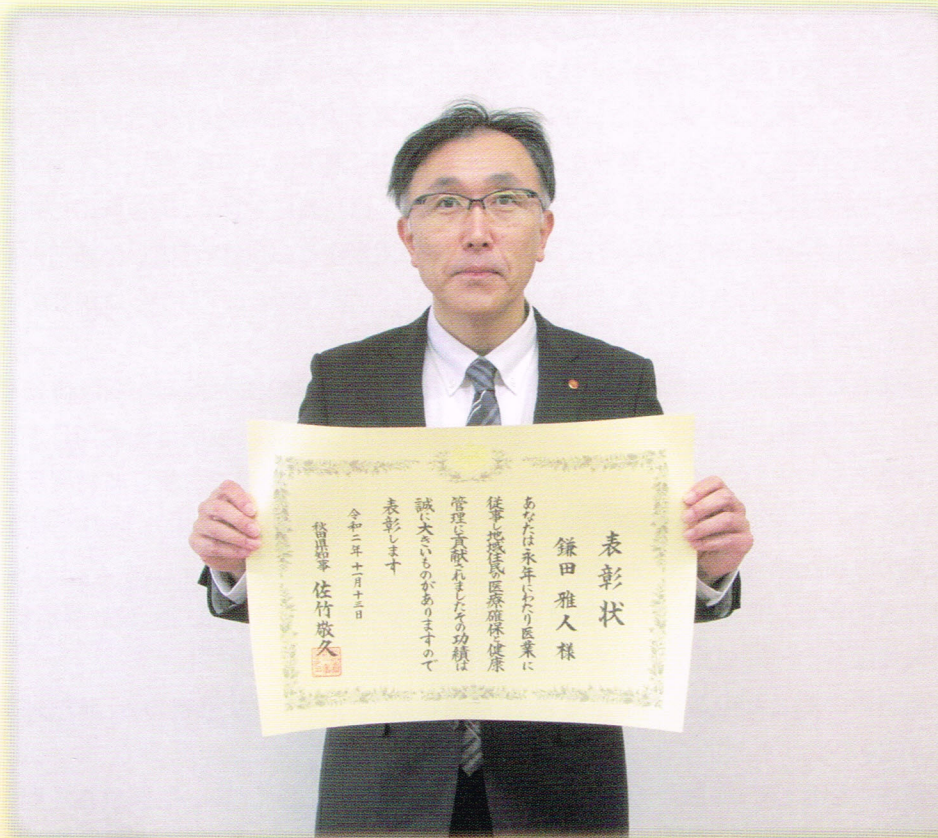 表彰状
鎌田雅人様
あなたは永年にわたり医業に
従事し地域住民の医療確保と健康
管理に貢献されましたその功績は
誠に大きいものがありますので
表彰します
令和二年十一月十三日
秋田県知事 佐竹敬久